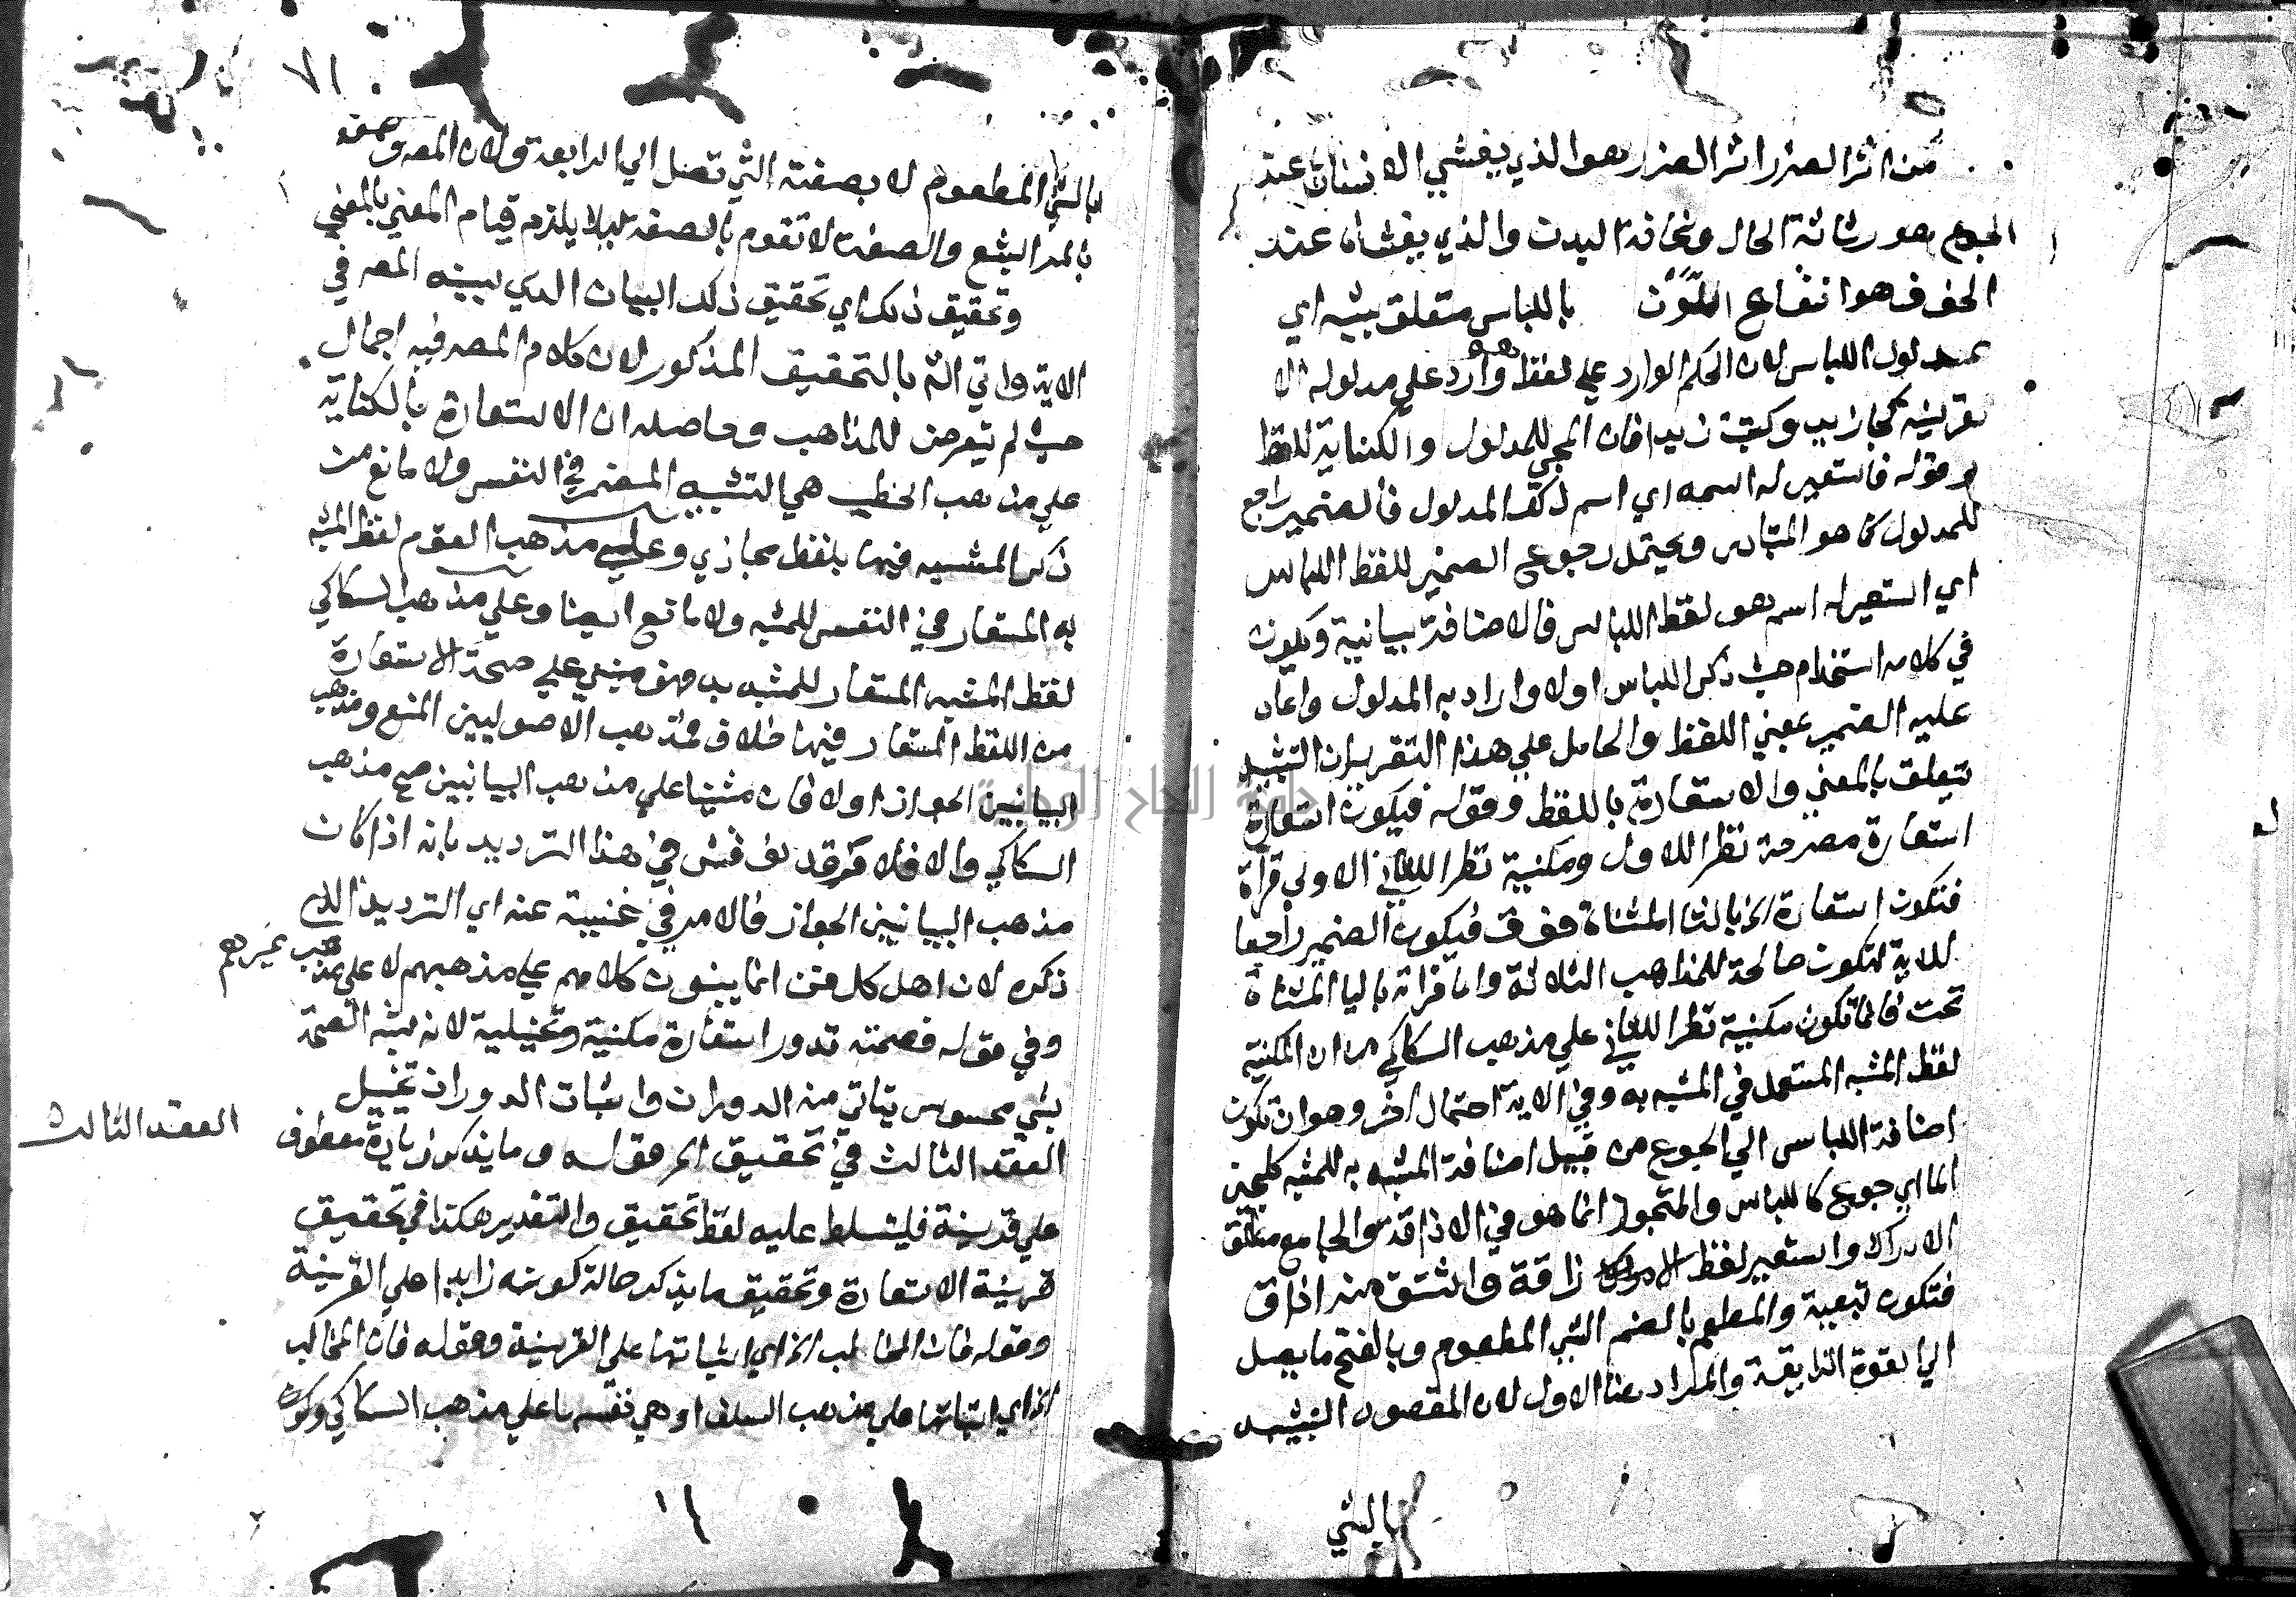 من اثر الضرر اثر الضرر هو الذي يغشي الانسان عند
الجوع هو رثاثة الحال ونحافة البدن والذي يغشاه عند
الخوف هو انتقاع اللون باللباس متعلق بشبه اي
بمدلول اللباس لان الحكم الوارد علي لفظ وارد علي مدلوله الا
بقرينة كجا زيد وكتبت زيدا فان المجي للمدلول والكتابة للفظ
وقوله فاستعير له اسمه اي اسم ذلك المدلول فالضمير راجع
للمدلول كما هو المتبادر ويحتمل رجوع الضمير للفظ اللباس
اي استعير له اسم هو لفظ اللباس فالاضافة بيانية ويكون
في كلامه استخدام حيث ذكر اللباس اولا واراد به المدلول واعاد
عليه الضمير بمعني اللفظ والحامل علي هذا التقرير ان التشبيه
يتعلق بالمعني والاستعارة باللفظ وقوله فيكون استعارة
استعارة مصرحة نظرا للاول ومكنية نظرا للثاني الاولي قرأة
فتكون استعارة الخ بالتا المثناة فوق فيكون الضمير راجعا
للاية لتكون صالحة للمذاهب الثلاثة واما قراته باليا المثناة
تحت فانما تكون مكنية نظرا للثاني علي مذهب السكاكي من ان المكنية
لفظ المشبه المستعمل في المشبه به وفي الاية احتمال اخر وهو ان تكون
اضافة اللباس الي الجوع من قبيل اضافة المشبه به للمشبه كلجين
الما اي جوع كاللباس والتجوز انما هو في الاذاقة والجامع مطلق
الادراك واستعير لفظ الاذاقة واشتق منه اذاق
فتكون تبعية والمطعم بالضم الشي المطعوم وبالفتح ما يصل
الي القوة الذايقة والمراد هنا الاول لان المقصود التشبيه
بالشي
٧١
بالشي المطعوم لا بصفته التي تصل الي الذايقة ولان المر وصفه
بالمر البشع والصفة لا تقوم بالصفة ليلا يلزم قيام المعني بالمعني
وتحقيق ذلك اي تحقيق ذلك البيان الذي بينه المصه في
الاية واتي الشه بالتحقيق المذكور لان كلام المصه فيه اجمال
حيث لم يتعرض للمذاهب وحاصله ان الاستعارة بالكناية
علي مذهب الخطيب هي التشبيه المضمر في النفس ولا مانع من
ذكر المشبه فيها بلفظ مجازي وعلي مذهب القوم لفظ المشبه
به المستعار في النفس للمشبه ولا مانع ايضا وعلي مذهب السكاكي
لفظ المشبه المستعار للمشبه به فهو مبني علي صحة الاستعارة
من اللفظ المستعار فيها خلاف فمذهب الاصوليين المنع ومذهب
البيانيين الجواز اولا فان مشينا علي مذهب البيانيين صح مذهب
السكاكي والا فلا وقد نوقش في هذا الترديد بانه اذا كان
مذهب البيانيين الجواز فالامر في غنيبة عنه اي الترديد الذي
ذكره لان اهل كل فن انما يبنون كلامهم علي مذهبهم لا علي مذهب غيرهم
وفي قوله فصحته تدور استعارة مكنية وتخيلية لانه شبه الصحة
بشي محسوس يتاتي منه الدوران واثبات الدوران تخييل
العقد الثالث
العقد الثالث في تحقيق الخ قوله وما يذكر زيادة معطوف
علي قرينة فيتسلط عليه لفظ تحقيق والتقدير هكذا في تحقيق
قرينة الاستعارة وتحقيق ما يذكر حالة كونه زايدا علي القرينة
وقوله فان المخالب الخ اي اثباتها علي القرينة وقوله فان المخالب
الخ اي اثباتها علي مذهب السلف او هي نفسها علي مذهب السكاكي وكون